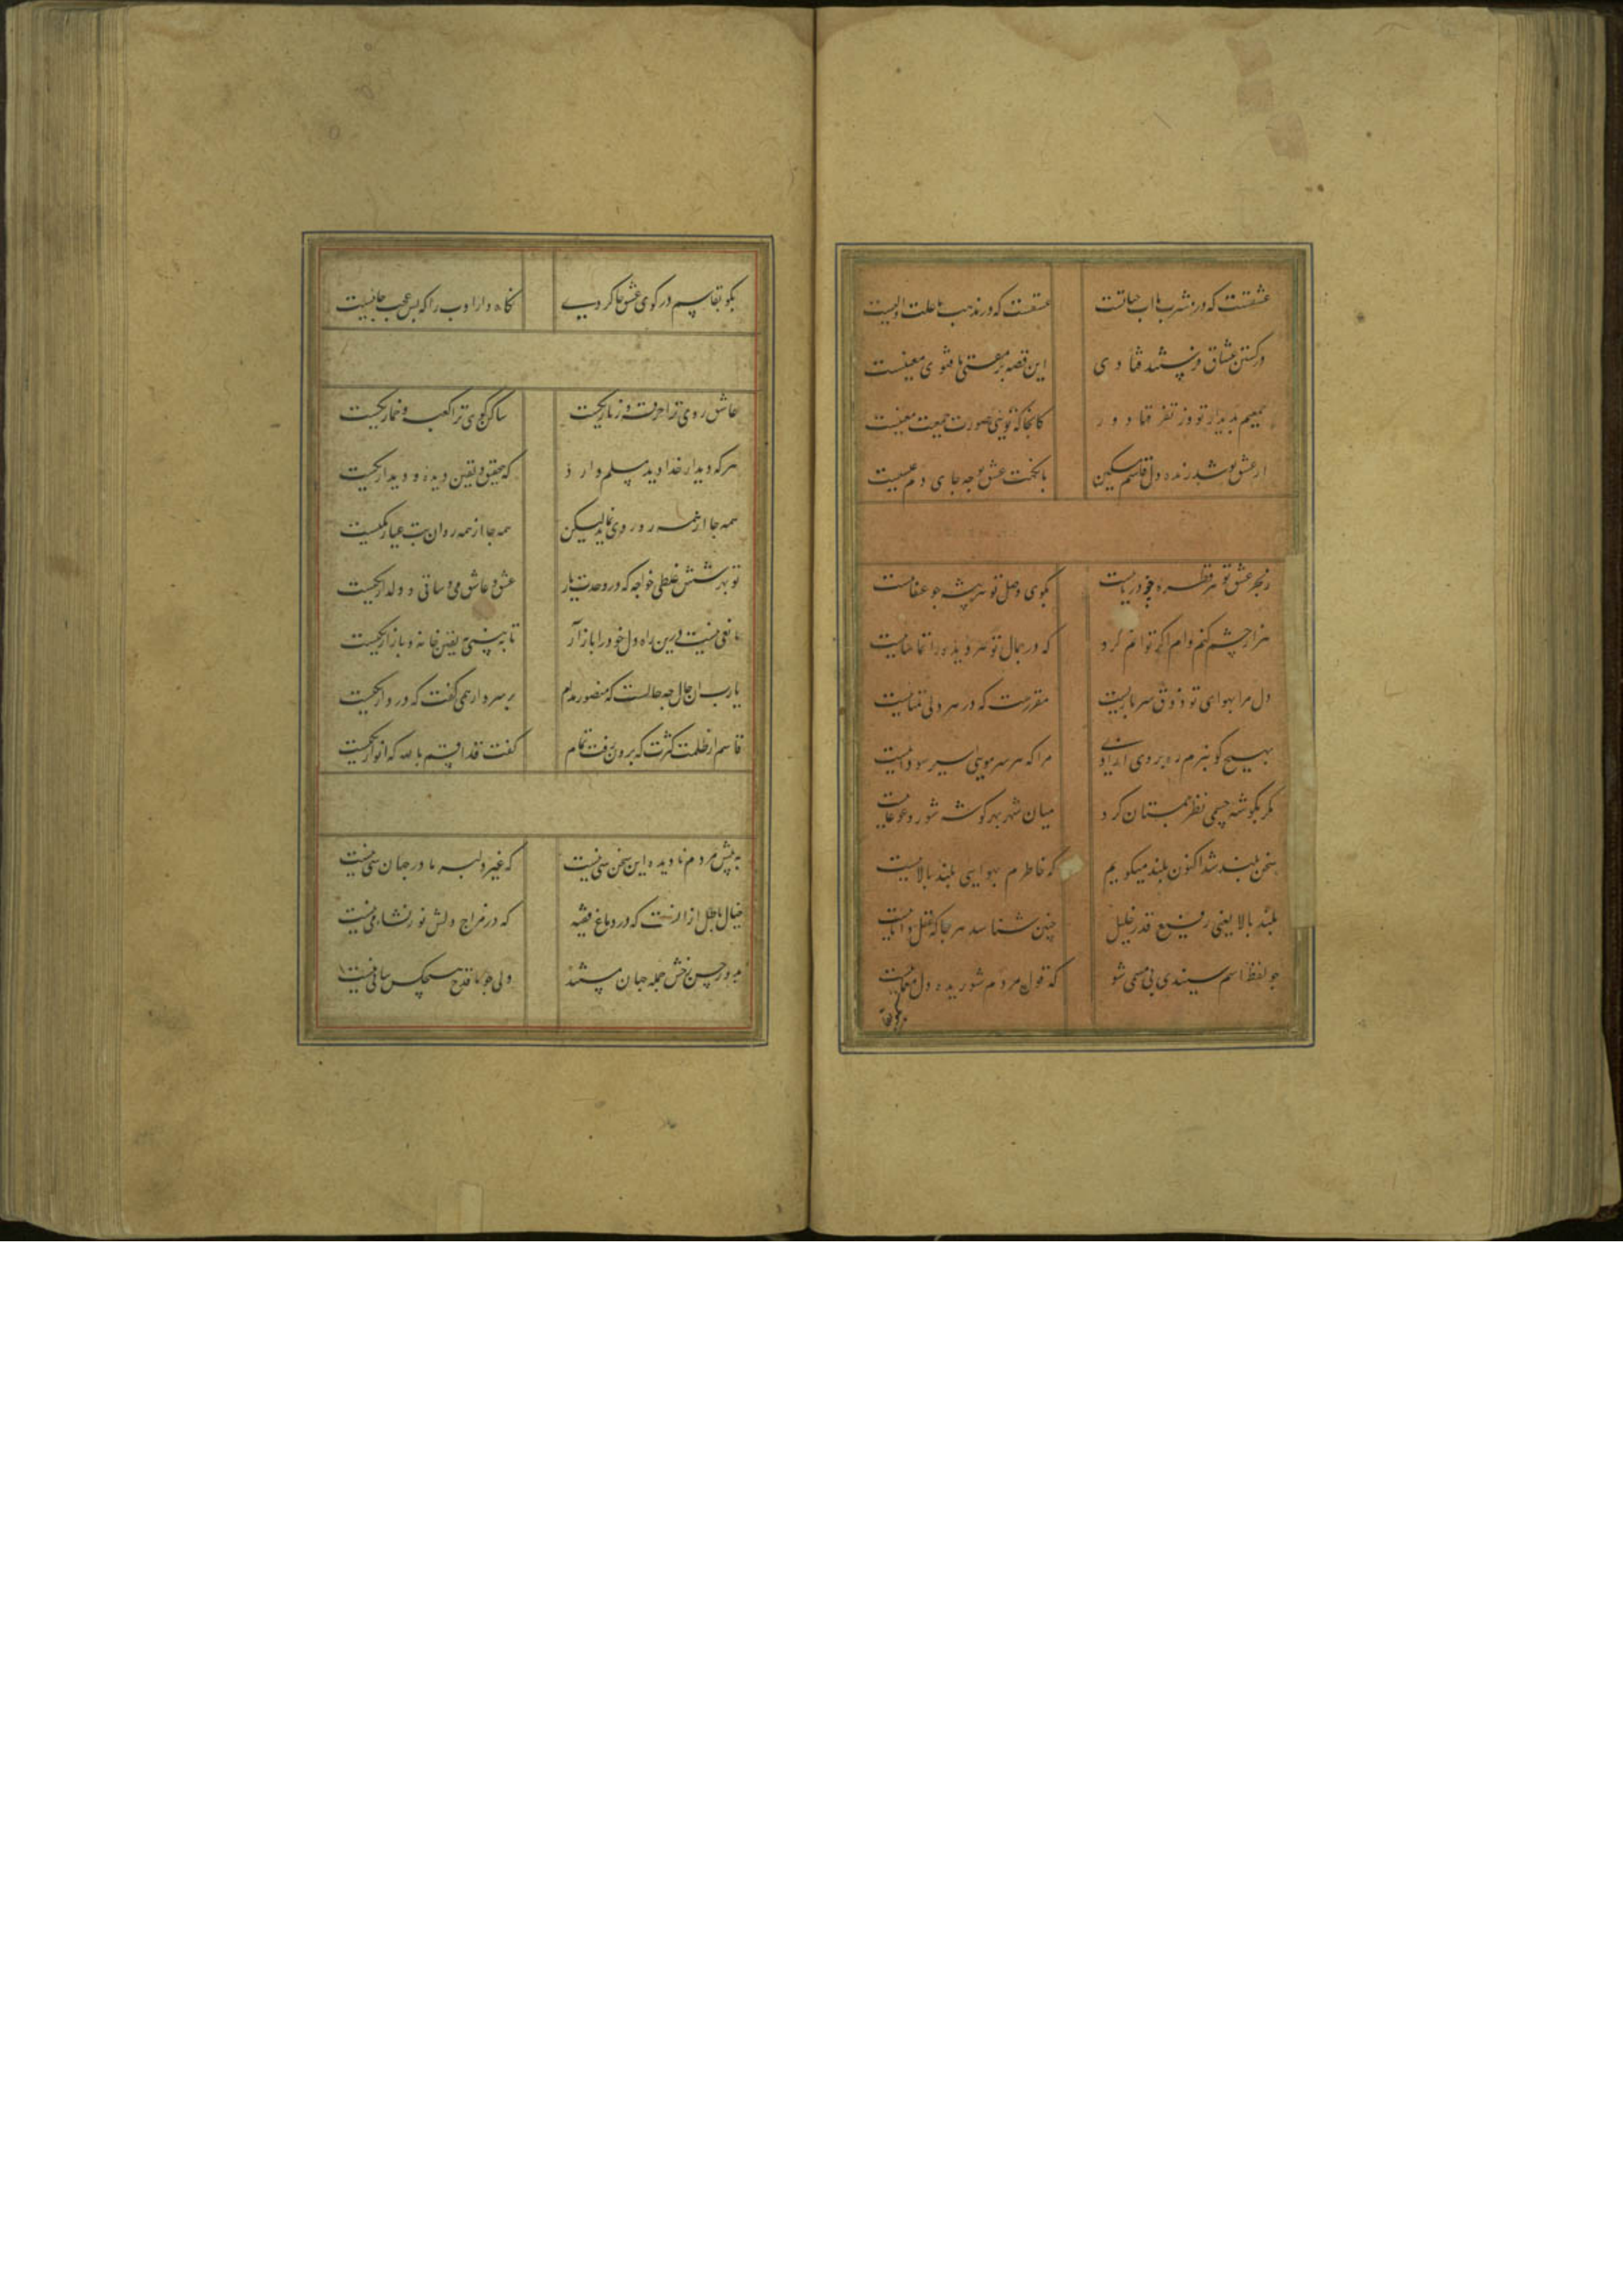 عشقست که در مشرب ما اب حیاتست عشقست که در مذهب ما علت اولیست
در کشتن عشاق فرستند فتاوی این قصه بر مفتی ما فتوی معنیست
جمعیم بدیدار تو وز تفرقها دور کانجا که تویی صورت جمعیت معنیست
از عشق تو شد زنده دل قاسم مسکین با نکهت عشق تو چه جای دم عیسیست
ز بحر عشق تو هر قطره چو دریاییست بکوی وصل تو هر پشه چو عنقاییست
هزار چشم کنم وام اگر توانم کرد که در جمال تو هر دیده را تماشاییست
دل مرا بهوای تو ذوق سربازیست مقررست که در هر دلی تمناییست
بهیچ کو نبرم ره بر وی مرا که هر سر مویی اسیر سوداییست
مکر بکوشه چشمی نظر بمستان کرد میان شهر بهر کوشه شور و غوغاییست
سخن بلند شد اکنون بلند میکویم که خاطرم بهوای بلند بالاییست
بلند بالا یعنی رفیع قدر خلیل چنین شناسد هر جا که عقل داناییست
چو لفظ اسم سیندی بی مسمی شو که قول مردم شوریده دل معماییست
بکو بقاسم در کوی عشق ما کردی نکاه دار ادب را که بس عجب جاییست
عاشق روی ترا خرقه و زنار یکیست ساکن کوی ترا کعبه و خمار یکیست
هر که دیدار خدا دید مسلم دارد که بتحقیق و یقین دیده و دیدار یکیست
همه جا از همه رو روی نماید لیکن همه جا از همه رو ان بت عیار یکیست
تو بهر شش غلطی خواجه که در وحدت یار عشق و عاشق می و ساقی و دلدار یکیست
مانعی نیست درین راه دل خود را باز آر تا ببینی بیقین خانه و بازار یکیست
یارب ان حال چه حالست که منصور مدام بر سر دار همی کفت که در دار یکیست
قاسم از ظلمت کثرت که برون رفت تمام کفت قد اقسم بالله که انوار یکیست
به پیش مردم نادیده این سخن شی نیست که غیر دلبر ما در جهان شی نیست
خیال باطل از انست که در دماغ فقیه که در مزاج دلش نور نشاء می نیست
بدور حسن خوش جمله جهان مستند ولی چو ما قدح هیچکس پیاپی نیست